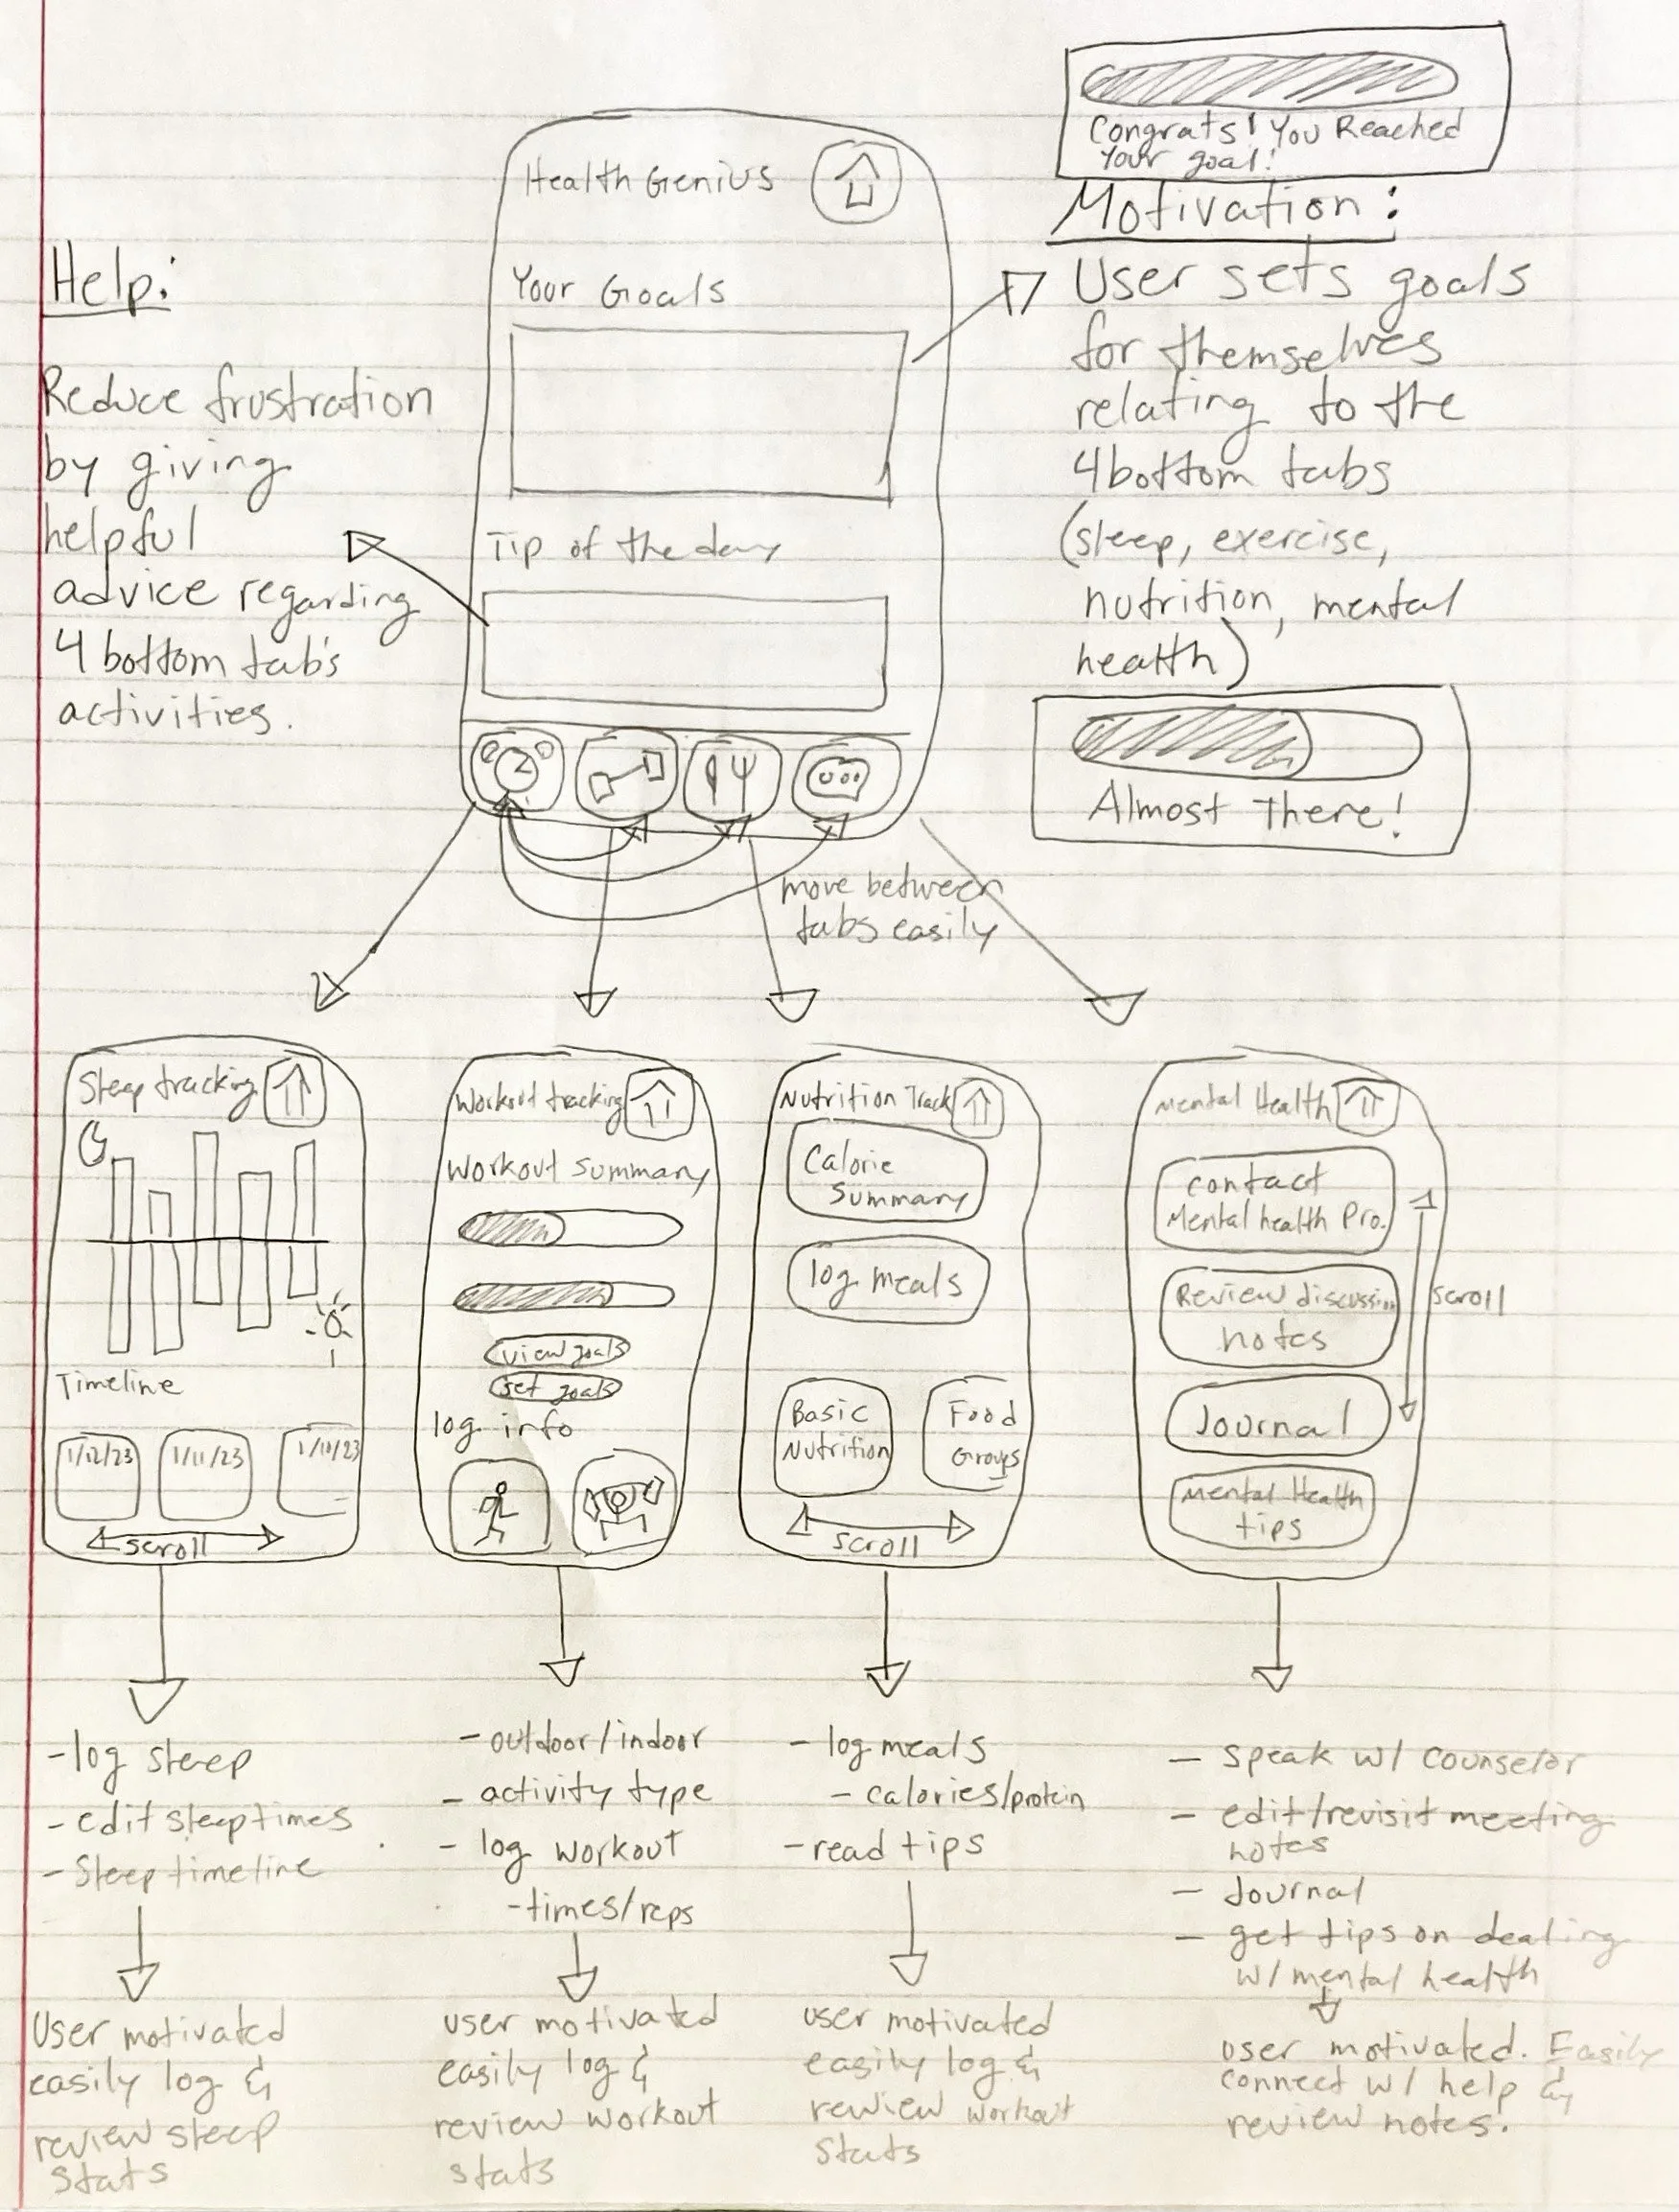 Congrats! You Reached
Your goal!
Motivation:
User sets goals
for themselves
relating to the
4 bottom tabs
(sleep, exercise,
nutrition, mental
health)
Almost There!
Health Genius
Your Goals
Tip of the day
Help:
Reduce frustration
by giving
helpful
advice regarding
4 bottom tab's
activities.
move between
tabs easily
Sleep tracking
Timeline
1/12/23
1/11/23
1/10/23
scroll
Workout tracking
Workout Summary
view goals
set goals
log info
Nutrition Track
Calorie
Summary
log meals
Basic
Nutrition
Food
Groups
scroll
Mental Health
Contact
Mental health Pro.
Review discussion
notes
Journal
Mental Health
tips
scroll
- log sleep
- edit sleep times
- Sleep timeline
User motivated
easily log &
review sleep
stats
- outdoor/indoor
- activity type
- log workout
- times/reps
user motivated
easily log &
review workout
stats
- log meals
- calories/protein
- read tips
user motivated
easily log &
review workout
stats
- speak w/ counselor
- edit/revisit meeting
notes
- Journal
- get tips on dealing
w/ mental health
user motivated. Easily
connect w/ help &
review notes.